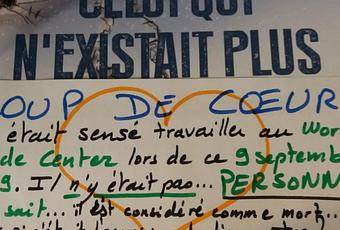 CELUI QUI
N'EXISTAIT PLUS
OUP DE CŒUR
était sensé travailler au Wor
de Center lors de ce 9 septemb
9. Il n'y était pas... PERSONN
sait... il est considéré comme mort...